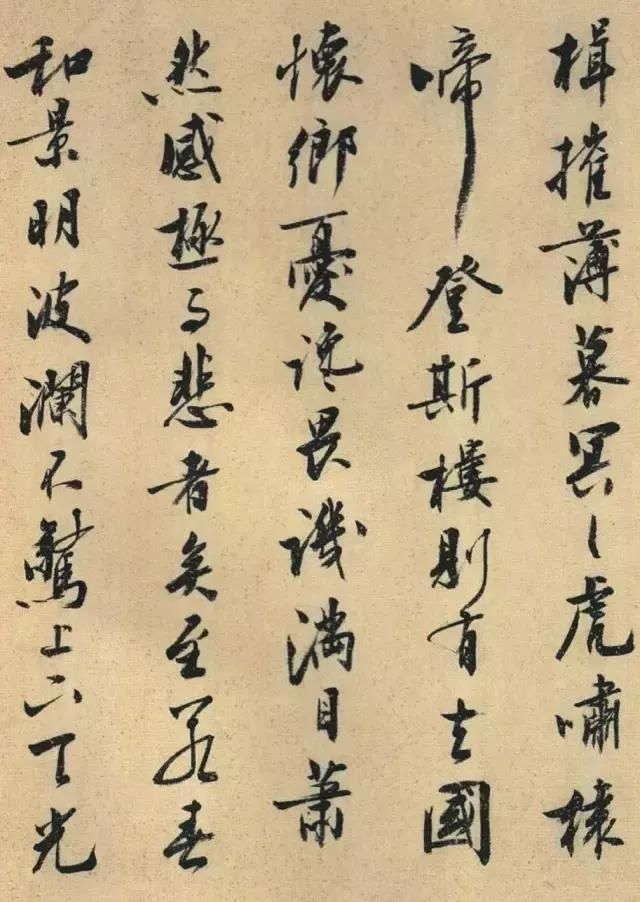 楫摧薄暮冥々虎嘯猿
啼登斯樓則有去國
懷鄉憂讒畏譏滿目蕭
然感極而悲者矣至若春
和景明波瀾不驚上下天光